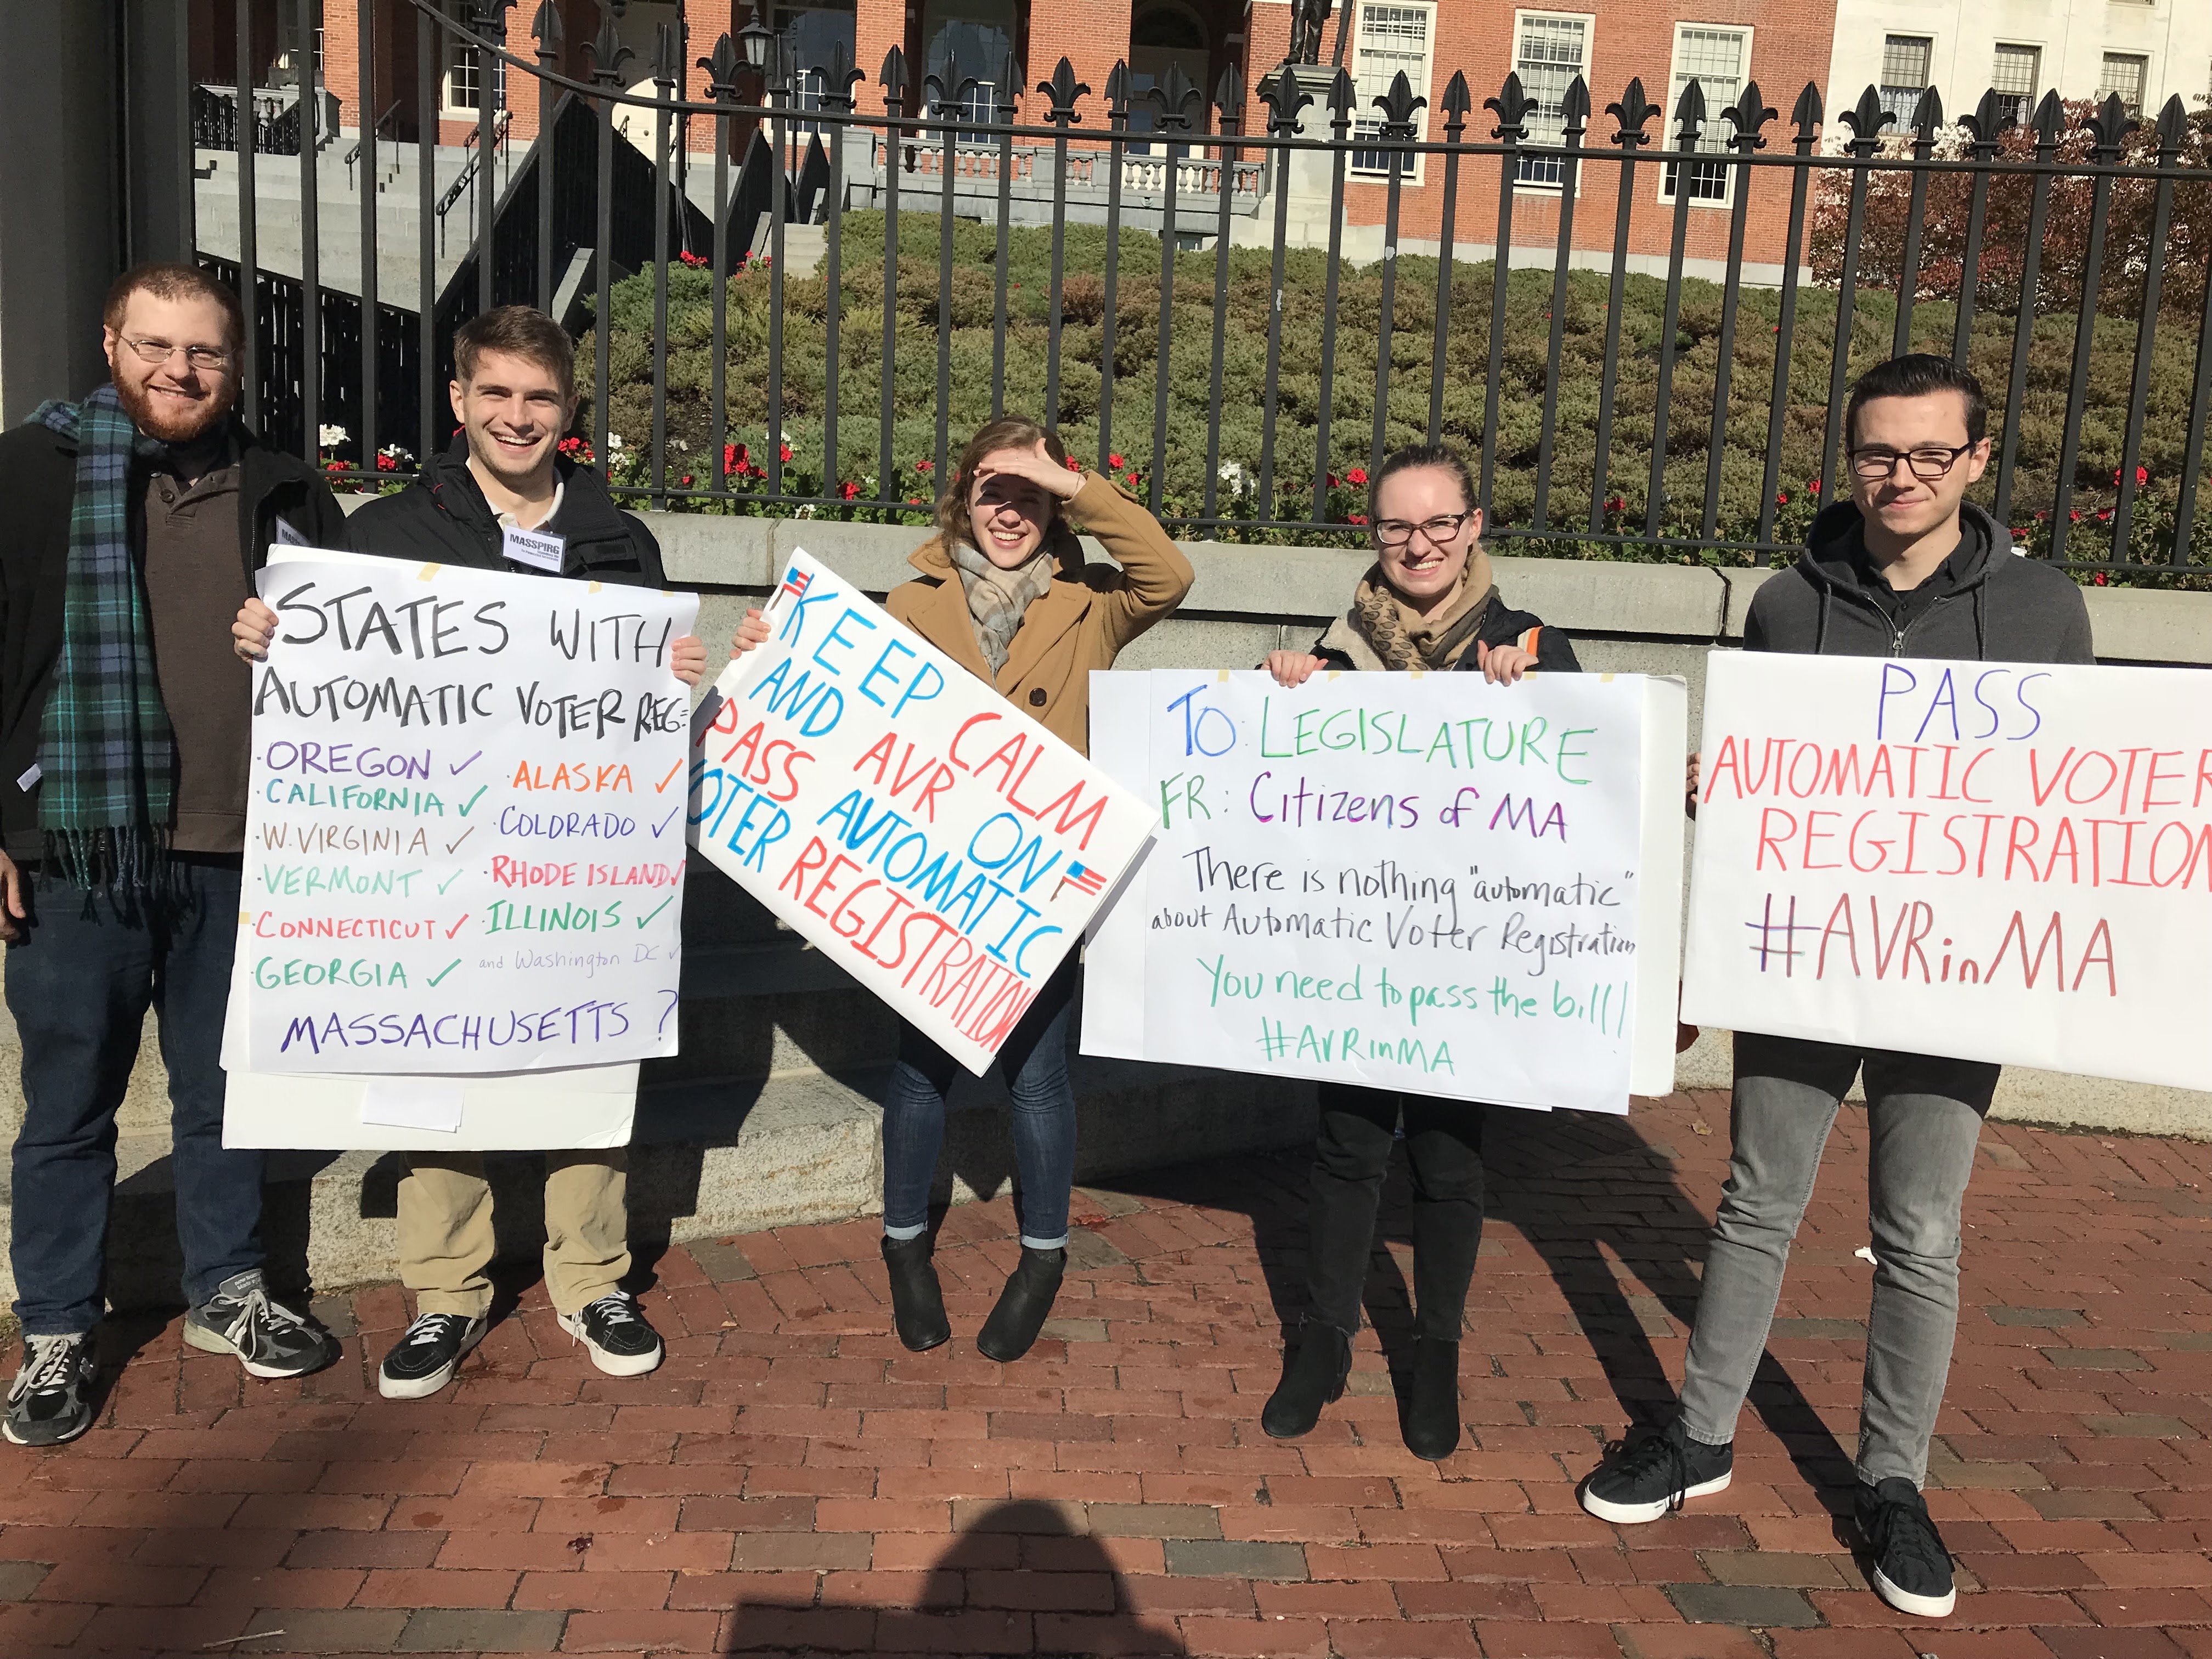 MASSPIRG
STATES WITH
AUTOMATIC VOTER REG:
· OREGON ✓
· CALIFORNIA ✓
· W. VIRGINIA ✓
· VERMONT ✓
· CONNECTICUT ✓
· GEORGIA ✓
· ALASKA ✓
· COLORADO ✓
· RHODE ISLAND ✓
· ILLINOIS ✓
and Washington DC ✓
MASSACHUSETTS ?
KEEP CALM
AND AVR ON
PASS AUTOMATIC
VOTER REGISTRATION
TO: LEGISLATURE
FR: Citizens of MA
There is nothing "automatic"
about Automatic Voter Registration
You need to pass the bill!
#AVRinMA
PASS
AUTOMATIC VOTER
REGISTRATION
#AVRinMA